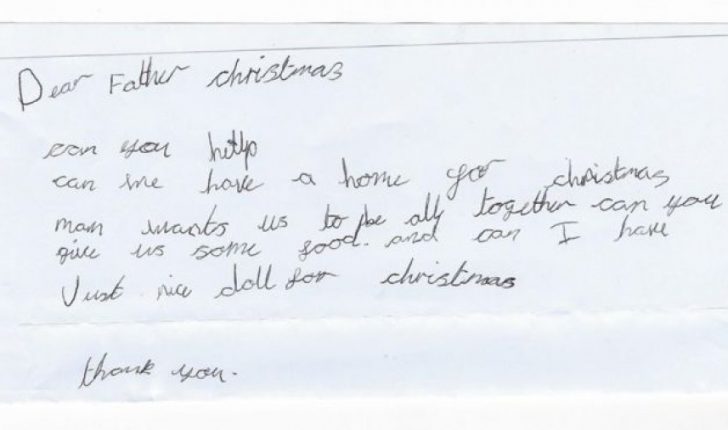 Dear Father christmas
can you hellp
can we have a home for christmas
mam wants us to be all together can you
give us some food. and can I have
Just nice doll for christmas
thank you.